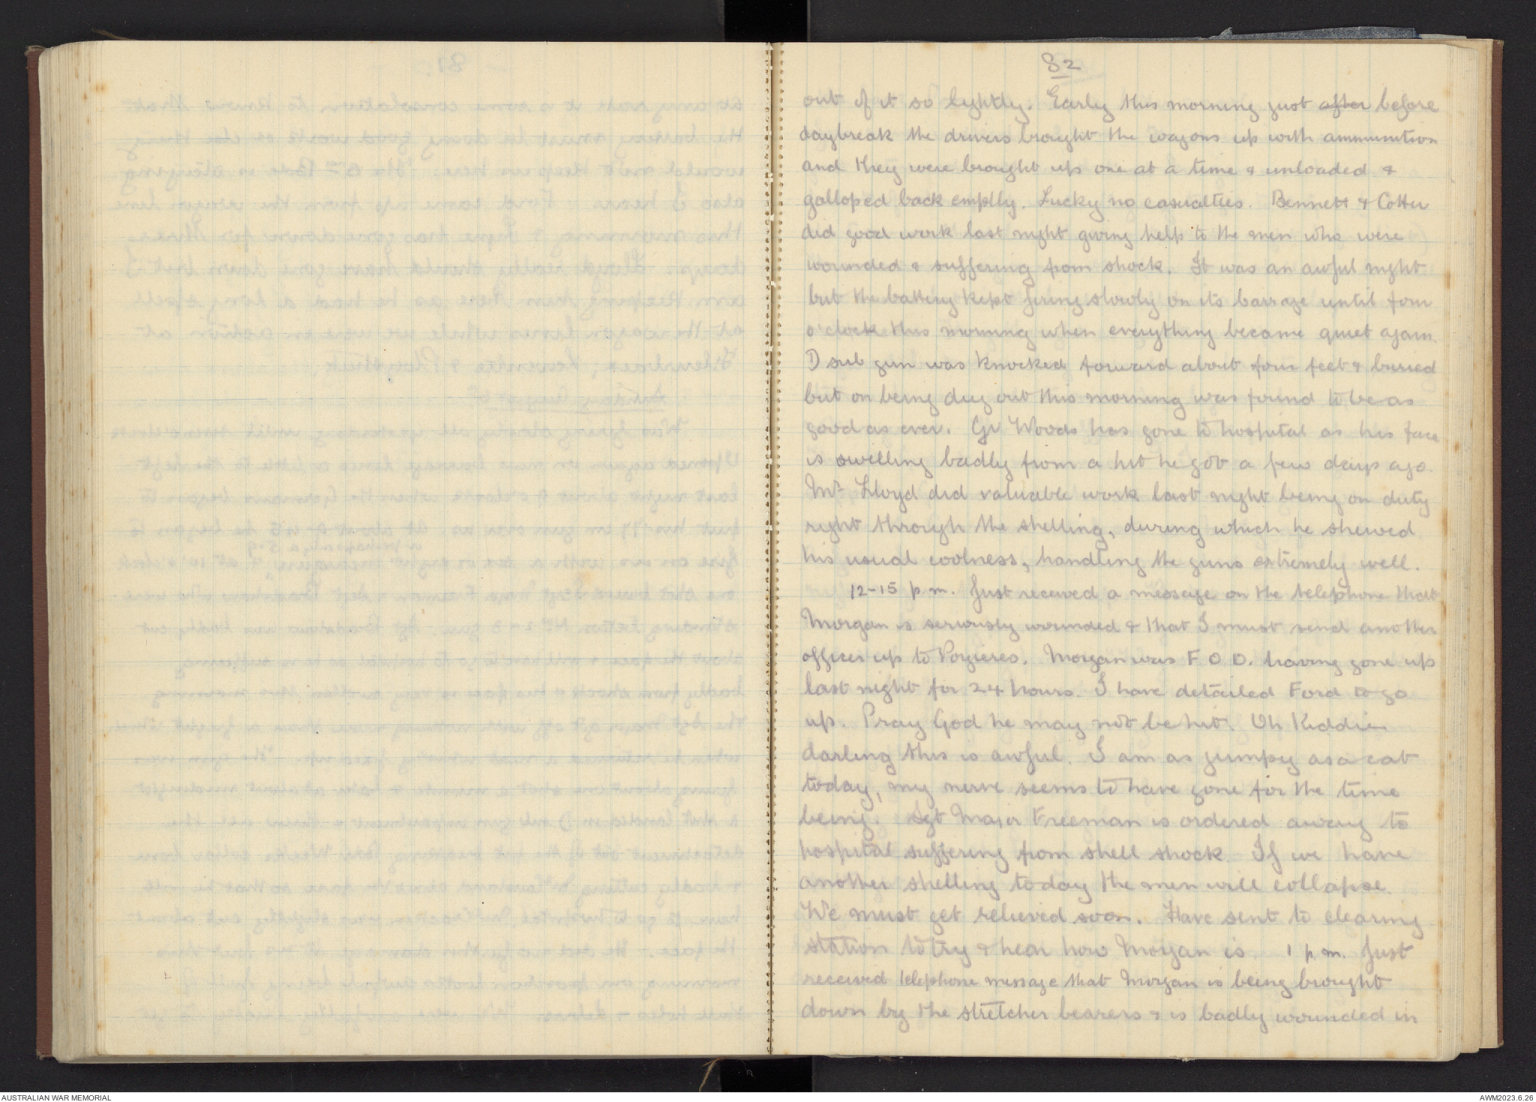 82
out of it so lightly. Early this morning just after before
daybreak the drivers brought the wagons up with ammunition
and they were brought up one at a time & unloaded &
galloped back emptly. Lucky no casualties. Bennett & Cotter
did good work last night giving help to the men who were
wounded & suffering from shock. It was an awful night
but the battery kept firing slowly on its barrage until four
o'clock this morning when everything became quiet again.
D sub gun was knocked forward about four feet & buried
but on being dug out this morning was found to be as
good as ever. Gr Woods has gone to hospital as his face
is swelling badly from a hit he got a few days ago.
Mr Lloyd did valuable work last night being on duty
right through the shelling, during which he shewed
his usual coolness, handling the guns extremely well.
12-15 p.m. Just received a message on the telephone that
Morgan is seriously wounded & that I must send another
officer up to Pozieres. Morgan was F.O.O. having gone up
last night for 24 hours. I have detailed Ford to go
up. Pray God he may not be hit. Oh Kiddie
darling this is awful. I am as jumpy as a cat
today, my nerve seems to have gone for the time
being. Sgt Major Freeman is ordered away to
hospital suffering from shell shock. If we have
another shelling today the men will collapse.
We must get relieved soon. Have sent to clearing
station to try & hear how Morgan is. 1 p.m. Just
received telephone message that Morgan is being brought
down by the stretcher bearers & is badly wounded in
AUSTRALIAN WAR MEMORIAL
AWM2023.6.26